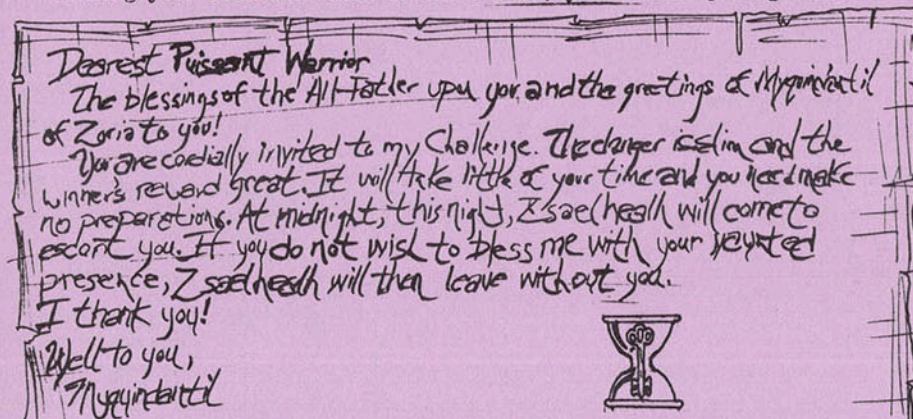 Dearest Puissant Warrior
The blessings of the All-Father upon you and the greetings of Myquindantil
of Zoria to you!
You are cordially invited to my Challenge. The danger is slim and the
winner's reward great. It will take little of your time and you need make
no preparations. At midnight, this night, Zsaelheath will come to
escort you. If you do not wish to bless me with your vaunted
presence, Zsaelheath will then leave without you.
I thank you!
Well to you,
Myquindantil